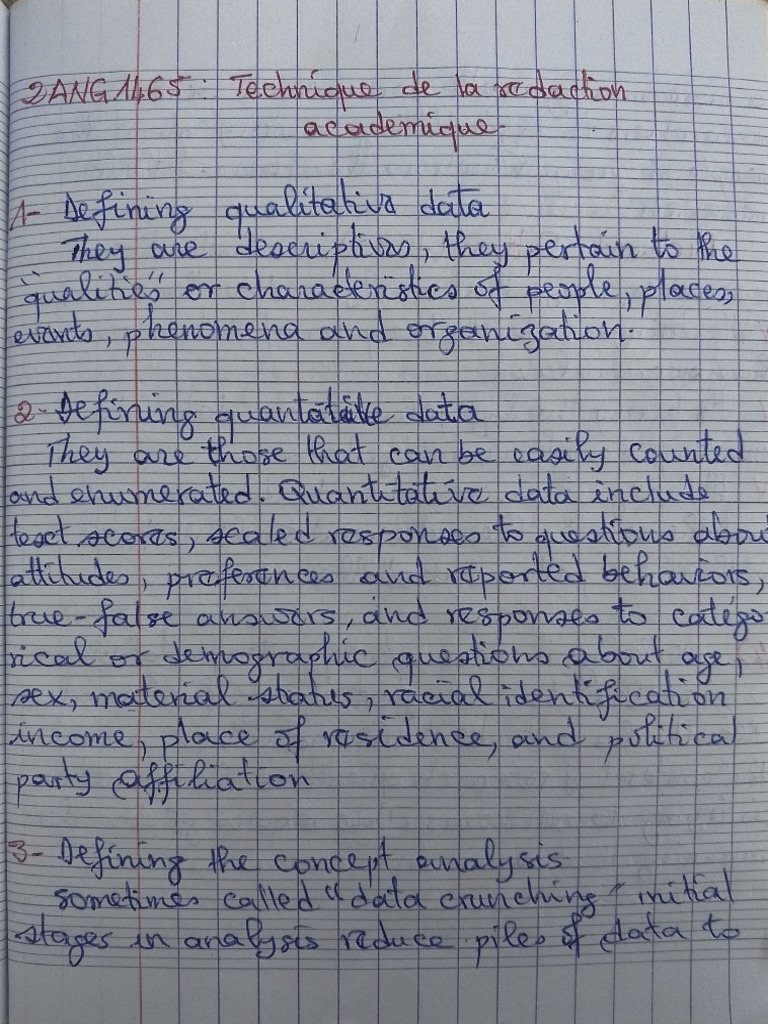 2ANG1465 : Technique de la redaction
academique.
1- Defining qualitative data
They are descriptives, they pertain to the
"qualities" or characteristics of people, places,
events, phenomena and organization.
2- Defining quantatitive data
They are those that can be easily counted
and enumerated. Quantitative data include
test scores, scaled responses to questions about
attitudes, preferences and reported behaviors,
true-false answers, and responses to catego
rical or demographic questions about age,
sex, material status, racial identification
income, place of residence, and political
party affiliation
3- Defining the concept analysis
sometimes called "data crunching" initial
stages in analysis reduce piles of data to